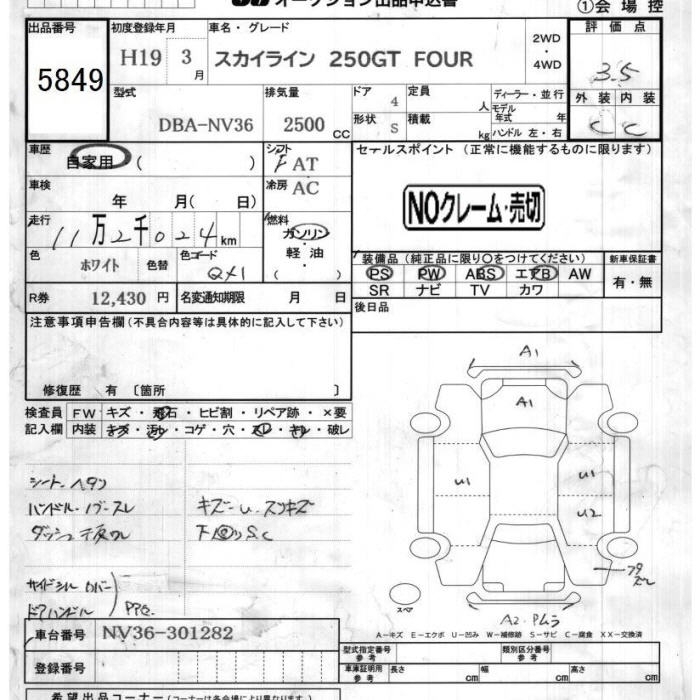 オークション出品申込書
①会場控
出品番号 初度登録年月 車名・グレード 2WD・4WD 評価点
5849 H19 3月 スカイライン 250GT FOUR 3.5
型式 排気量 ドア 4 定員 人 ディーラー・並行 外装 内装
DBA-NV36 2500cc 形状 S 積載 kg モデル年式 年 ハンドル 左・右 C C
車歴 シフト セールスポイント (正常に機能するものに限ります)
自家用 ( ) F AT
車検 冷房 AC
年 月( 日) NOクレーム・売切
走行 燃料
11万2千024km ガソリン
色 色替 色コード 軽・油
ホワイト QX1 ( )
装備品(純正品に限り○をつけてください) 新車保証書
PS PW ABS エアB AW 有・無
SR ナビ TV カワ
R券 12,430円 名変通知期限 月 日
後日品
注意事項申告欄(不具合内容等は具体的に記入して下さい)
修復歴 有〔箇所 〕
検査員 FW キズ・飛石・ヒビ割・リペア跡・×要
記入欄 内装 キズ・汚れ・コゲ・穴・スレ・キレ・破レ
A1
A1
U1 U1
U2
シート ヘタリ
ハンドル・ノブ スレ
キズ・U・スリキズ
ダッシュ
下回りS.C
サイドシル カバー
ドアハンドル
スペア
A2・Pムラ
A-キズ E-エクボ U-凹み W-補修跡 S-サビ C-腐食 XX-交換済
車台番号 NV36-301282
登録番号
型式指定番号 参考 類別区分番号 参考
車庫証明用 参考 長さ cm 幅 cm 高さ cm
希望出品コーナー(コーナーは各会場により異なります)